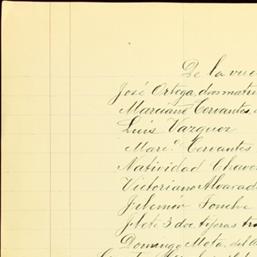 De la vue
José Ortega, dos matri
Marciano Cervantes,
Luis Vazquez
Marc.º Cervantes
Natividad Chave
Victoriano Alvarad
Filemón Sanche
Flete 3 doc tijeras tra
Domingo Mota, del